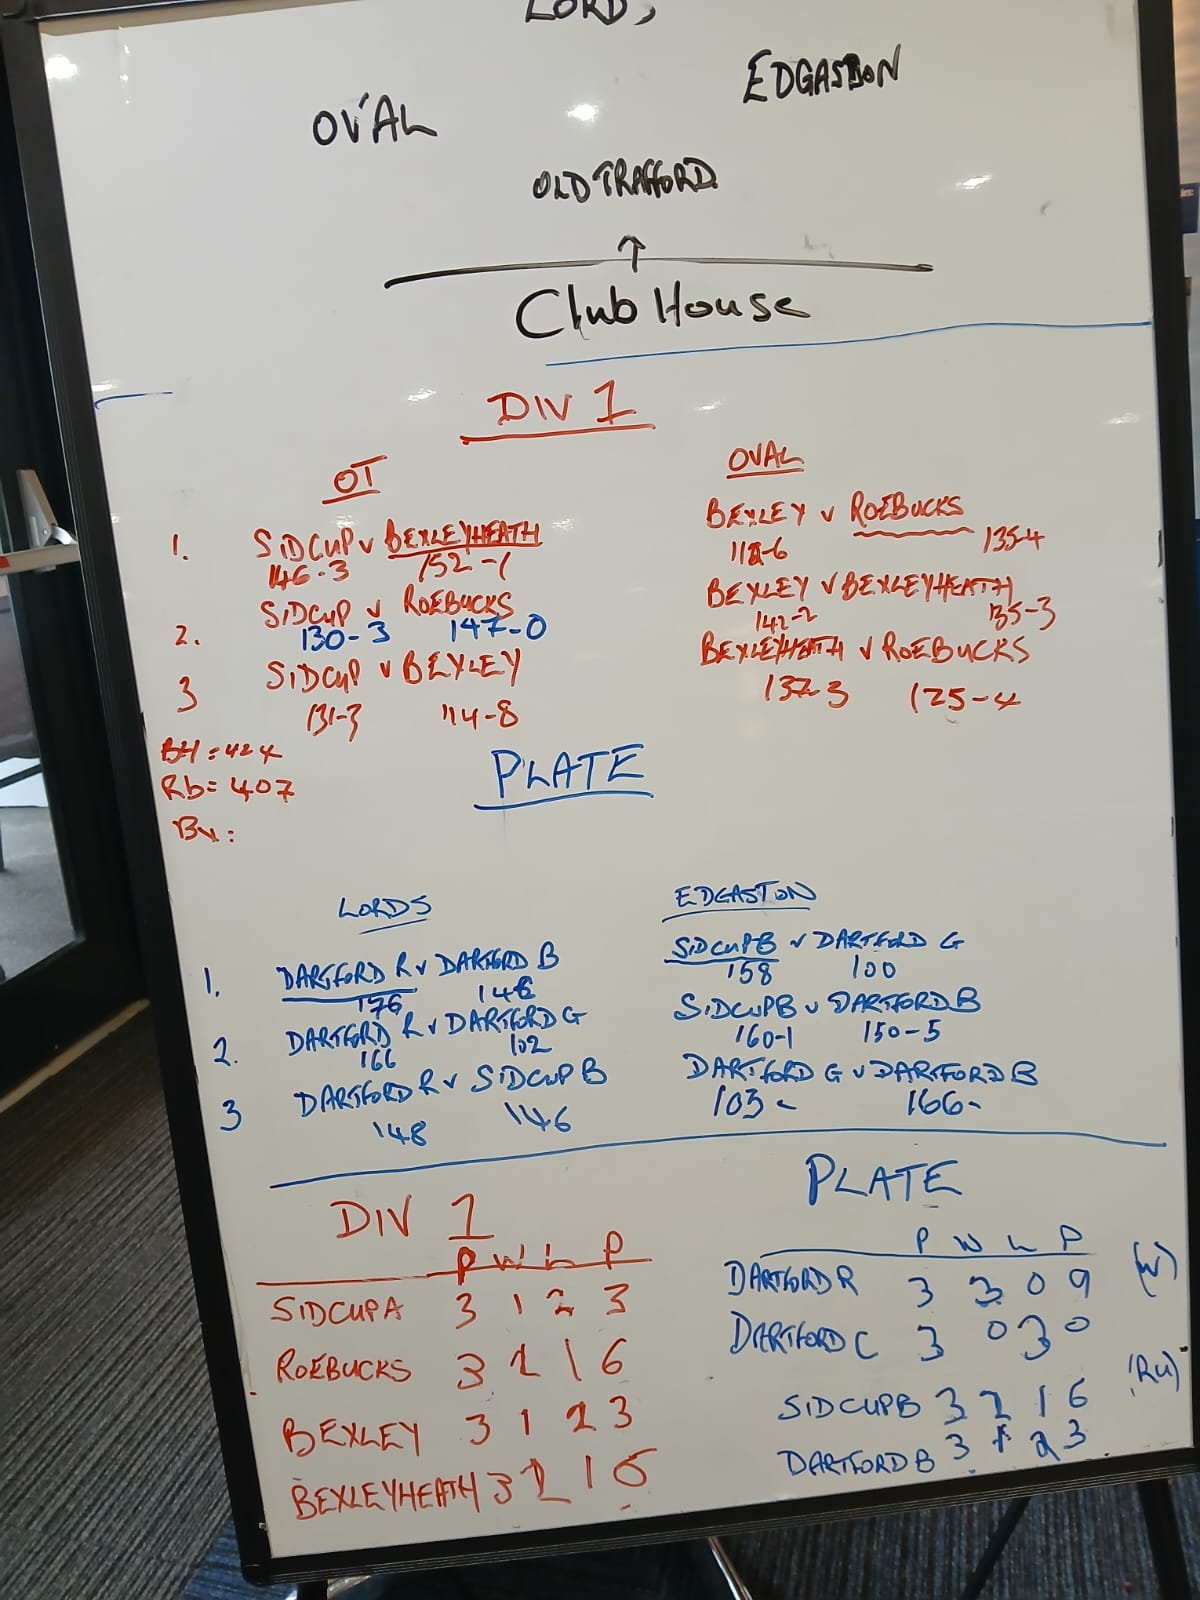 LORD,
EDGASTON
OVAL
OLD TRAFFORD.
↑
Club House
DIV 1
OT
OVAL
1. SIDCUP v BEXLEYHEATH
146-3 152-1
BEXLEY v ROEBUCKS
135-4
2. SIDCUP v ROEBUCKS
130-3 147-0
BEXLEY v BEXLEYHEATH
142-2 135-3
3 SIDCUP v BEXLEY
131-3 114-8
BEXLEYHEATH v ROEBUCKS
137-3 125-4
BH = 424
Rb = 407
Bx:
PLATE
LORDS
EDGASTON
1. DARTFORD R v DARTFORD B
176
SIDCUP B v DARTFORD G
158 100
2. DARTFORD R v DARTFORD G
166 102
SIDCUP B v DARTFORD B
160-1 150-5
3 DARTFORD R v SIDCUP B
148 146
DARTFORD G v DARTFORD B
103- 166-
DIV 1
P W L P
SIDCUP A 3 1 2 3
ROEBUCKS 3 2 1 6
BEXLEY 3 1 2 3
BEXLEYHEATH 3 2 1 6
PLATE
P W L P
DARTFORD R 3 3 0 9 (W)
DARTFORD C 3 0 3 0
SIDCUP B 3 2 1 6 (RU)
DARTFORD B 3 1 2 3